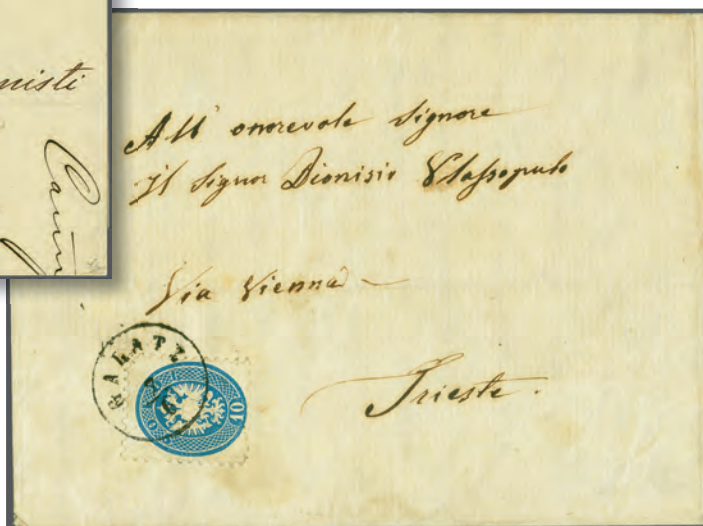 nisti
All' onorevole Signore
Il Signor Dionisio Vlassopulo
Via Vienna
Trieste.
GALATZ
10